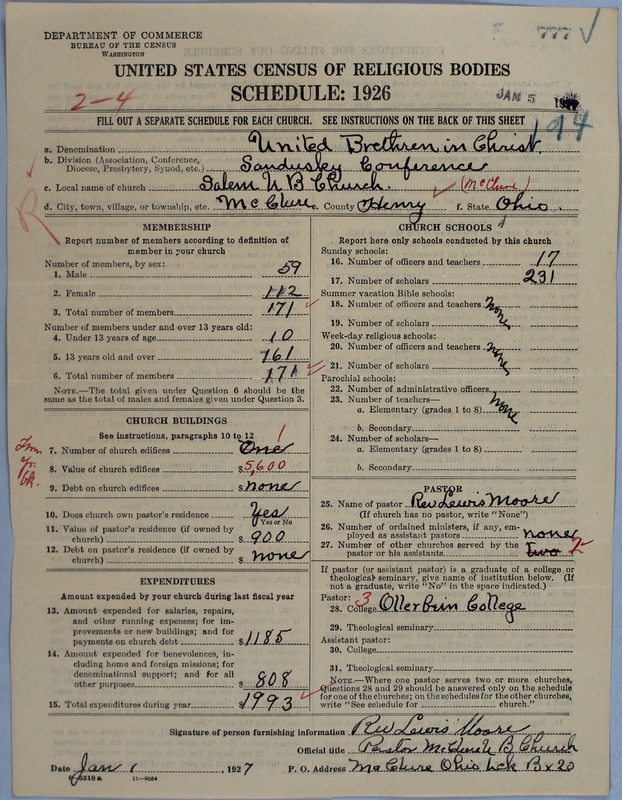 DEPARTMENT OF COMMERCE
BUREAU OF THE CENSUS
WASHINGTON
777 ✓
UNITED STATES CENSUS OF RELIGIOUS BODIES
SCHEDULE: 1926
2-4
JAN 5
FILL OUT A SEPARATE SCHEDULE FOR EACH CHURCH. SEE INSTRUCTIONS ON THE BACK OF THIS SHEET
194
a. Denomination United Brethren in Christ.
b. Division (Association, Conference, Diocese, Presbytery, Synod, etc.) Sandusky Conference
c. Local name of church Salem U B Church. (McClure)
d. City, town, village, or township, etc. McClure e. County Henry f. State Ohio.
R
MEMBERSHIP
Report number of members according to definition of
member in your church
Number of members, by sex:
1. Male 59
2. Female 112
3. Total number of members 171
Number of members under and over 13 years old:
4. Under 13 years of age 10
5. 13 years old and over 161
6. Total number of members 171
NOTE.—The total given under Question 6 should be the
same as the total of males and females given under Question 3.
CHURCH BUILDINGS
See instructions, paragraphs 10 to 12
7. Number of church edifices One 1
8. Value of church edifices $5,600
9. Debt on church edifices $ none
10. Does church own pastor's residence Yes
Yes or No
11. Value of pastor's residence (if owned by
church) $ 900
12. Debt on pastor's residence (if owned by
church) $ none
EXPENDITURES
Amount expended by your church during last fiscal year
13. Amount expended for salaries, repairs,
and other running expenses; for im-
provements or new buildings; and for
payments on church debt $1185
14. Amount expended for benevolences, in-
cluding home and foreign missions; for
denominational support; and for all
other purposes $ 808
15. Total expenditures during year $1993
CHURCH SCHOOLS
Report here only schools conducted by this church
Sunday schools:
16. Number of officers and teachers 17
17. Number of scholars 231
Summer vacation Bible schools:
18. Number of officers and teachers none
19. Number of scholars
Week-day religious schools:
20. Number of officers and teachers none
21. Number of scholars
Parochial schools:
22. Number of administrative officers
23. Number of teachers—
a. Elementary (grades 1 to 8) none
b. Secondary
24. Number of scholars—
a. Elementary (grades 1 to 8)
b. Secondary
PASTOR
25. Name of pastor Rev Lewis Moore
(If church has no pastor, write "None")
26. Number of ordained ministers, if any, em-
ployed as assistant pastors none
27. Number of other churches served by the
pastor or his assistants two 2
If pastor (or assistant pastor) is a graduate of a college or
theological seminary, give name of institution below. (If
not a graduate, write "No" in the space indicated.)
Pastor: 3
28. College Otterbein College
29. Theological seminary
Assistant pastor:
30. College
31. Theological seminary
NOTE.—Where one pastor serves two or more churches,
Questions 28 and 29 should be answered only on the schedule
for one of the churches; on the schedules for the other churches,
write "See schedule for church."
Signature of person furnishing information Rev Lewis Moore
Official title Pastor McClure U B Church
Date Jan 1, 1927 P. O. Address McClure Ohio Lock Bx 20
11—9054